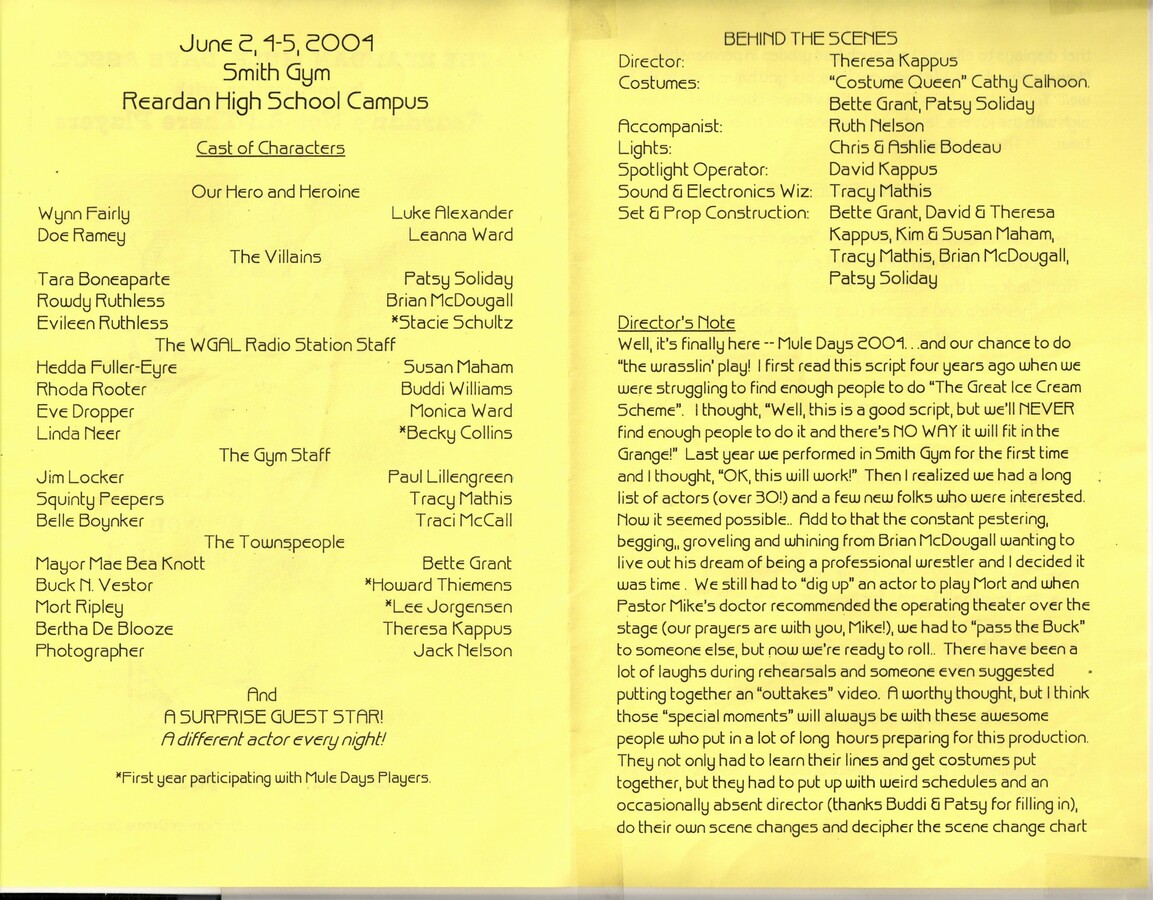 June 2, 4-5, 2004
Smith Gym
Reardan High School Campus
Cast of Characters
Our Hero and Heroine
Wynn Fairly Luke Alexander
Doe Ramey Leanna Ward
The Villains
Tara Boneaparte Patsy Soliday
Rowdy Ruthless Brian McDougall
Evileen Ruthless *Stacie Schultz
The WGAL Radio Station Staff
Hedda Fuller-Eyre Susan Maham
Rhoda Rooter Buddi Williams
Eve Dropper Monica Ward
Linda Neer *Becky Collins
The Gym Staff
Jim Locker Paul Lillengreen
Squinty Peepers Tracy Mathis
Belle Boynker Traci McCall
The Townspeople
Mayor Mae Bea Knott Bette Grant
Buck N. Vestor *Howard Thiemens
Mort Ripley *Lee Jorgensen
Bertha De Blooze Theresa Kappus
Photographer Jack Nelson
And
A SURPRISE GUEST STAR!
A different actor every night!
*First year participating with Mule Days Players.
BEHIND THE SCENES
Director: Theresa Kappus
Costumes: "Costume Queen" Cathy Calhoon.
Bette Grant, Patsy Soliday
Accompanist: Ruth Nelson
Lights: Chris & Ashlie Bodeau
Spotlight Operator: David Kappus
Sound & Electronics Wiz: Tracy Mathis
Set & Prop Construction: Bette Grant, David & Theresa
Kappus, Kim & Susan Maham,
Tracy Mathis, Brian McDougall,
Patsy Soliday
Director's Note
Well, it's finally here -- Mule Days 2004. . .and our chance to do
"the wrasslin' play! I first read this script four years ago when we
were struggling to find enough people to do "The Great Ice Cream
Scheme". I thought, "Well, this is a good script, but we'll NEVER
find enough people to do it and there's NO WAY it will fit in the
Grange!" Last year we performed in Smith Gym for the first time
and I thought, "OK, this will work!" Then I realized we had a long
list of actors (over 30!) and a few new folks who were interested.
Now it seemed possible.. Add to that the constant pestering,
begging,, groveling and whining from Brian McDougall wanting to
live out his dream of being a professional wrestler and I decided it
was time . We still had to "dig up" an actor to play Mort and when
Pastor Mike's doctor recommended the operating theater over the
stage (our prayers are with you, Mike!), we had to "pass the Buck"
to someone else, but now we're ready to roll.. There have been a
lot of laughs during rehearsals and someone even suggested
putting together an "outtakes" video. A worthy thought, but I think
those "special moments" will always be with these awesome
people who put in a lot of long hours preparing for this production.
They not only had to learn their lines and get costumes put
together, but they had to put up with weird schedules and an
occasionally absent director (thanks Buddi & Patsy for filling in),
do their own scene changes and decipher the scene change chart